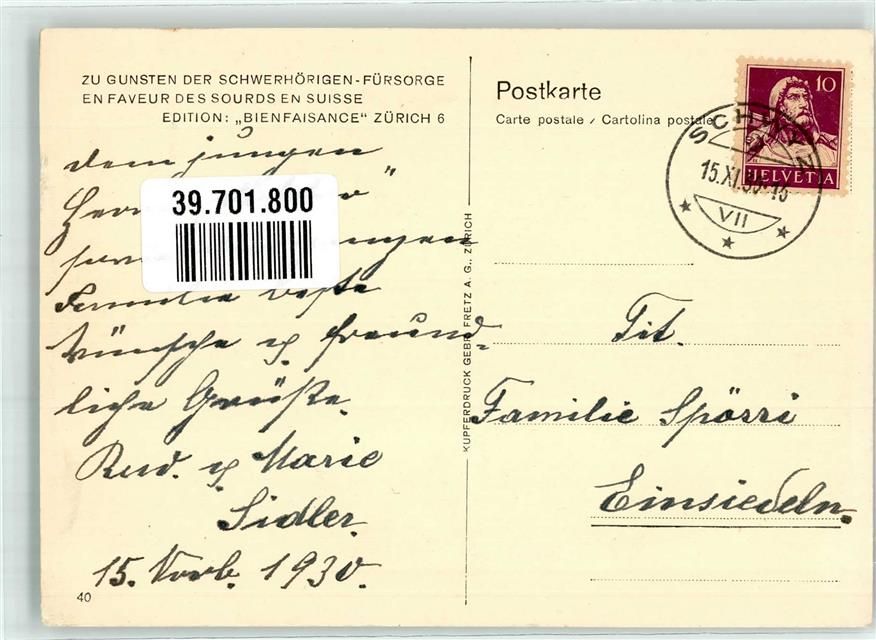 ZU GUNSTEN DER SCHWERHÖRIGEN-FÜRSORGE
EN FAVEUR DES SOURDS EN SUISSE
EDITION: „BIENFAISANCE“ ZÜRICH 6
dem jungen
39.701.800
Familie beste
Wünsche u. freund-
liche Grüße.
Rud. u. Marie
Sidler.
15. Novb. 1930.
40
KUPFERDRUCK GEBR. FRETZ A. G., ZÜRICH
Postkarte
Carte postale / Cartolina postale
10
HELVETIA
SCHWYZ
15.XI.30-15
VII
Tit.
Familie Spörri
Einsiedeln.